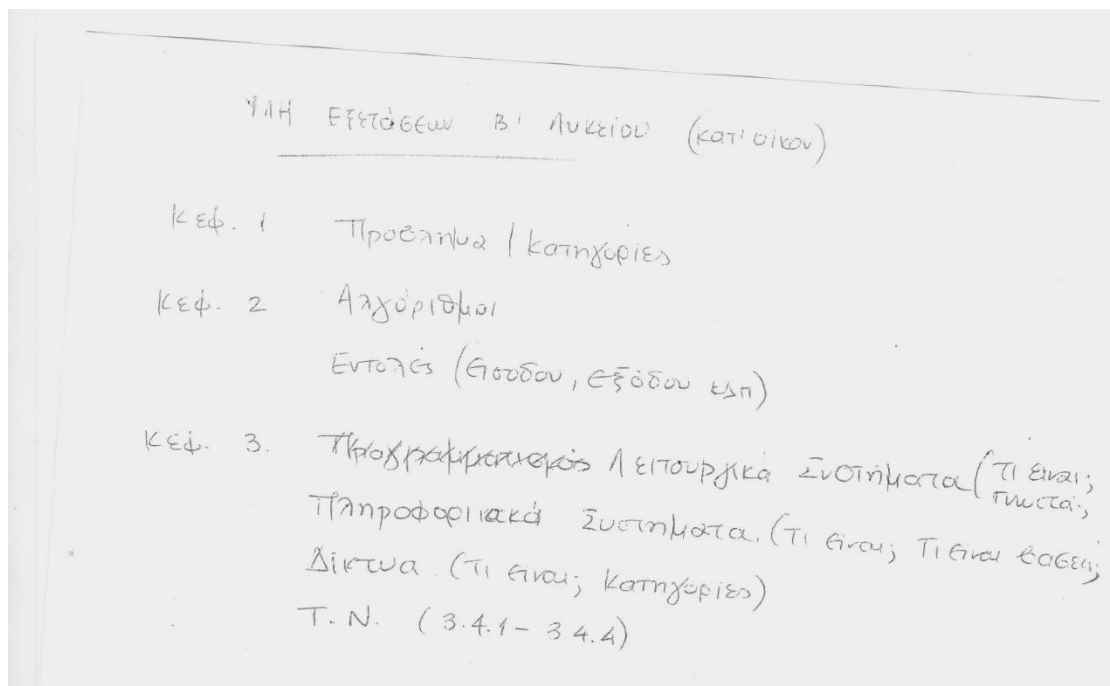 ΥΛΗ Εξετάσεων Β' Λυκείου (κατ' οίκον)
Κεφ. 1 Πρόβλημα / κατηγορίες
Κεφ. 2 Αλγόριθμοι
Εντολές (Εισόδου, Εξόδου κλπ)
Κεφ. 3. Προγραμματισμός Λειτουργικά Συστήματα (Τι είναι; Γνωστά;
Πληροφοριακά Συστήματα. (Τι είναι; Τι είναι βάσεις;
Δίκτυα. (Τι είναι; Κατηγορίες)
Τ.Ν. (3.4.1 - 3 4.4)